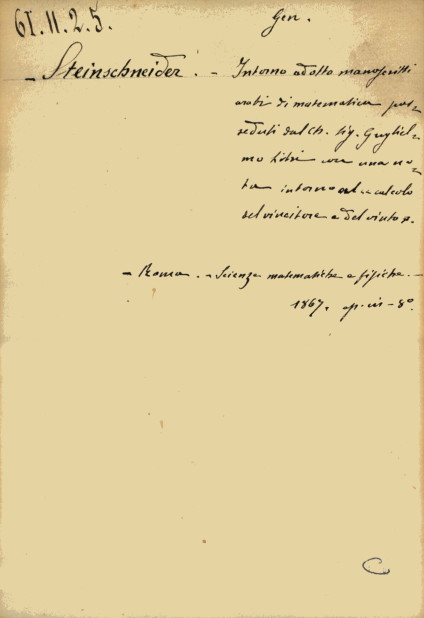 61.11.2.5.
Gen.
- Steinschneider. - Intorno ad otto manoscritti
arabi di matematica pos=
seduti dal Ch. Sig. Gugliel=
mo Libri con una no=
ta intorno al "calcolo
del vincitore e del vinto".
- Roma. - Scienze matematiche e fisiche. -
1867. op. in - 8º.
C